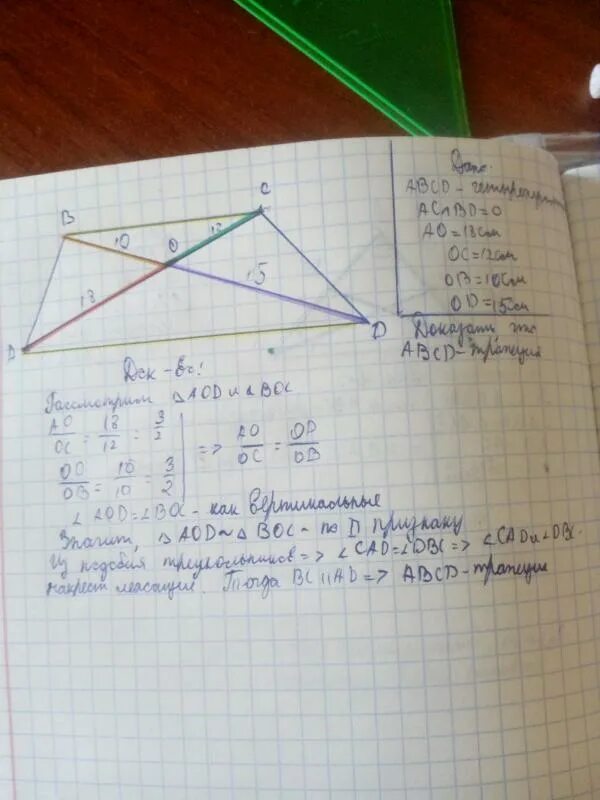 C
B
10
O
12
18
15
A
D
Дано:
ABCD - четырехугольник
AC∩BD=O
AO=18см
OC=12см
OB=10см
OD=15см
Доказать что
ABCD - трапеция
Док-во:
Рассмотрим △AOD и △BOC
AO/OC = 18/12 = 3/2
=> AO/OC = OD/OB
OD/OB = 15/10 = 3/2
∠AOD=∠BOC - как вертикальные
Значит, △AOD~△BOC - по II признаку
Из подобия треугольников => ∠CAD=∠DBC => ∠CAD и ∠DBC
накрест лежащие. Тогда BC||AD => ABCD - трапеция